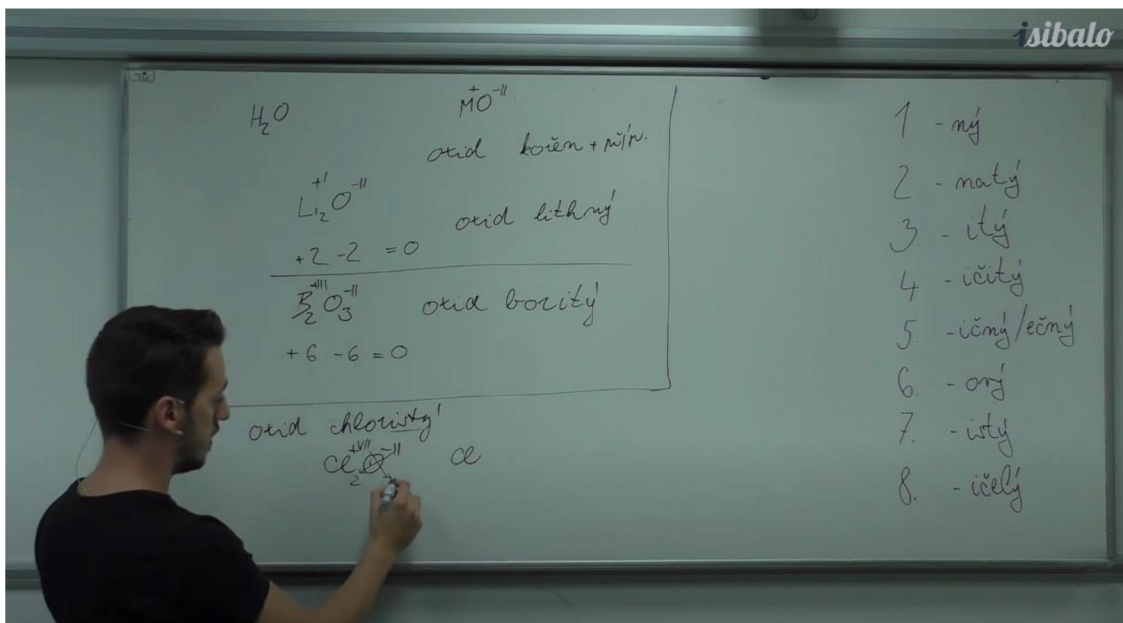 isibalo
H₂O
M⁺O⁻ᴵᴵ
oxid kořen + příp.
Li₂⁺ᴵO⁻ᴵᴵ
oxid lithný
+2 -2 = 0
B₂⁺ᴵᴵᴵO₃⁻ᴵᴵ oxid boritý
+6 -6 = 0
oxid chloristý
Cl₂⁺ⱽᴵᴵO⁻ᴵᴵ Cl
1 - ný
2. - natý
3. - itý
4 - ičitý
5. - ičný/ečný
6. - ový
7. - istý
8. - ičelý